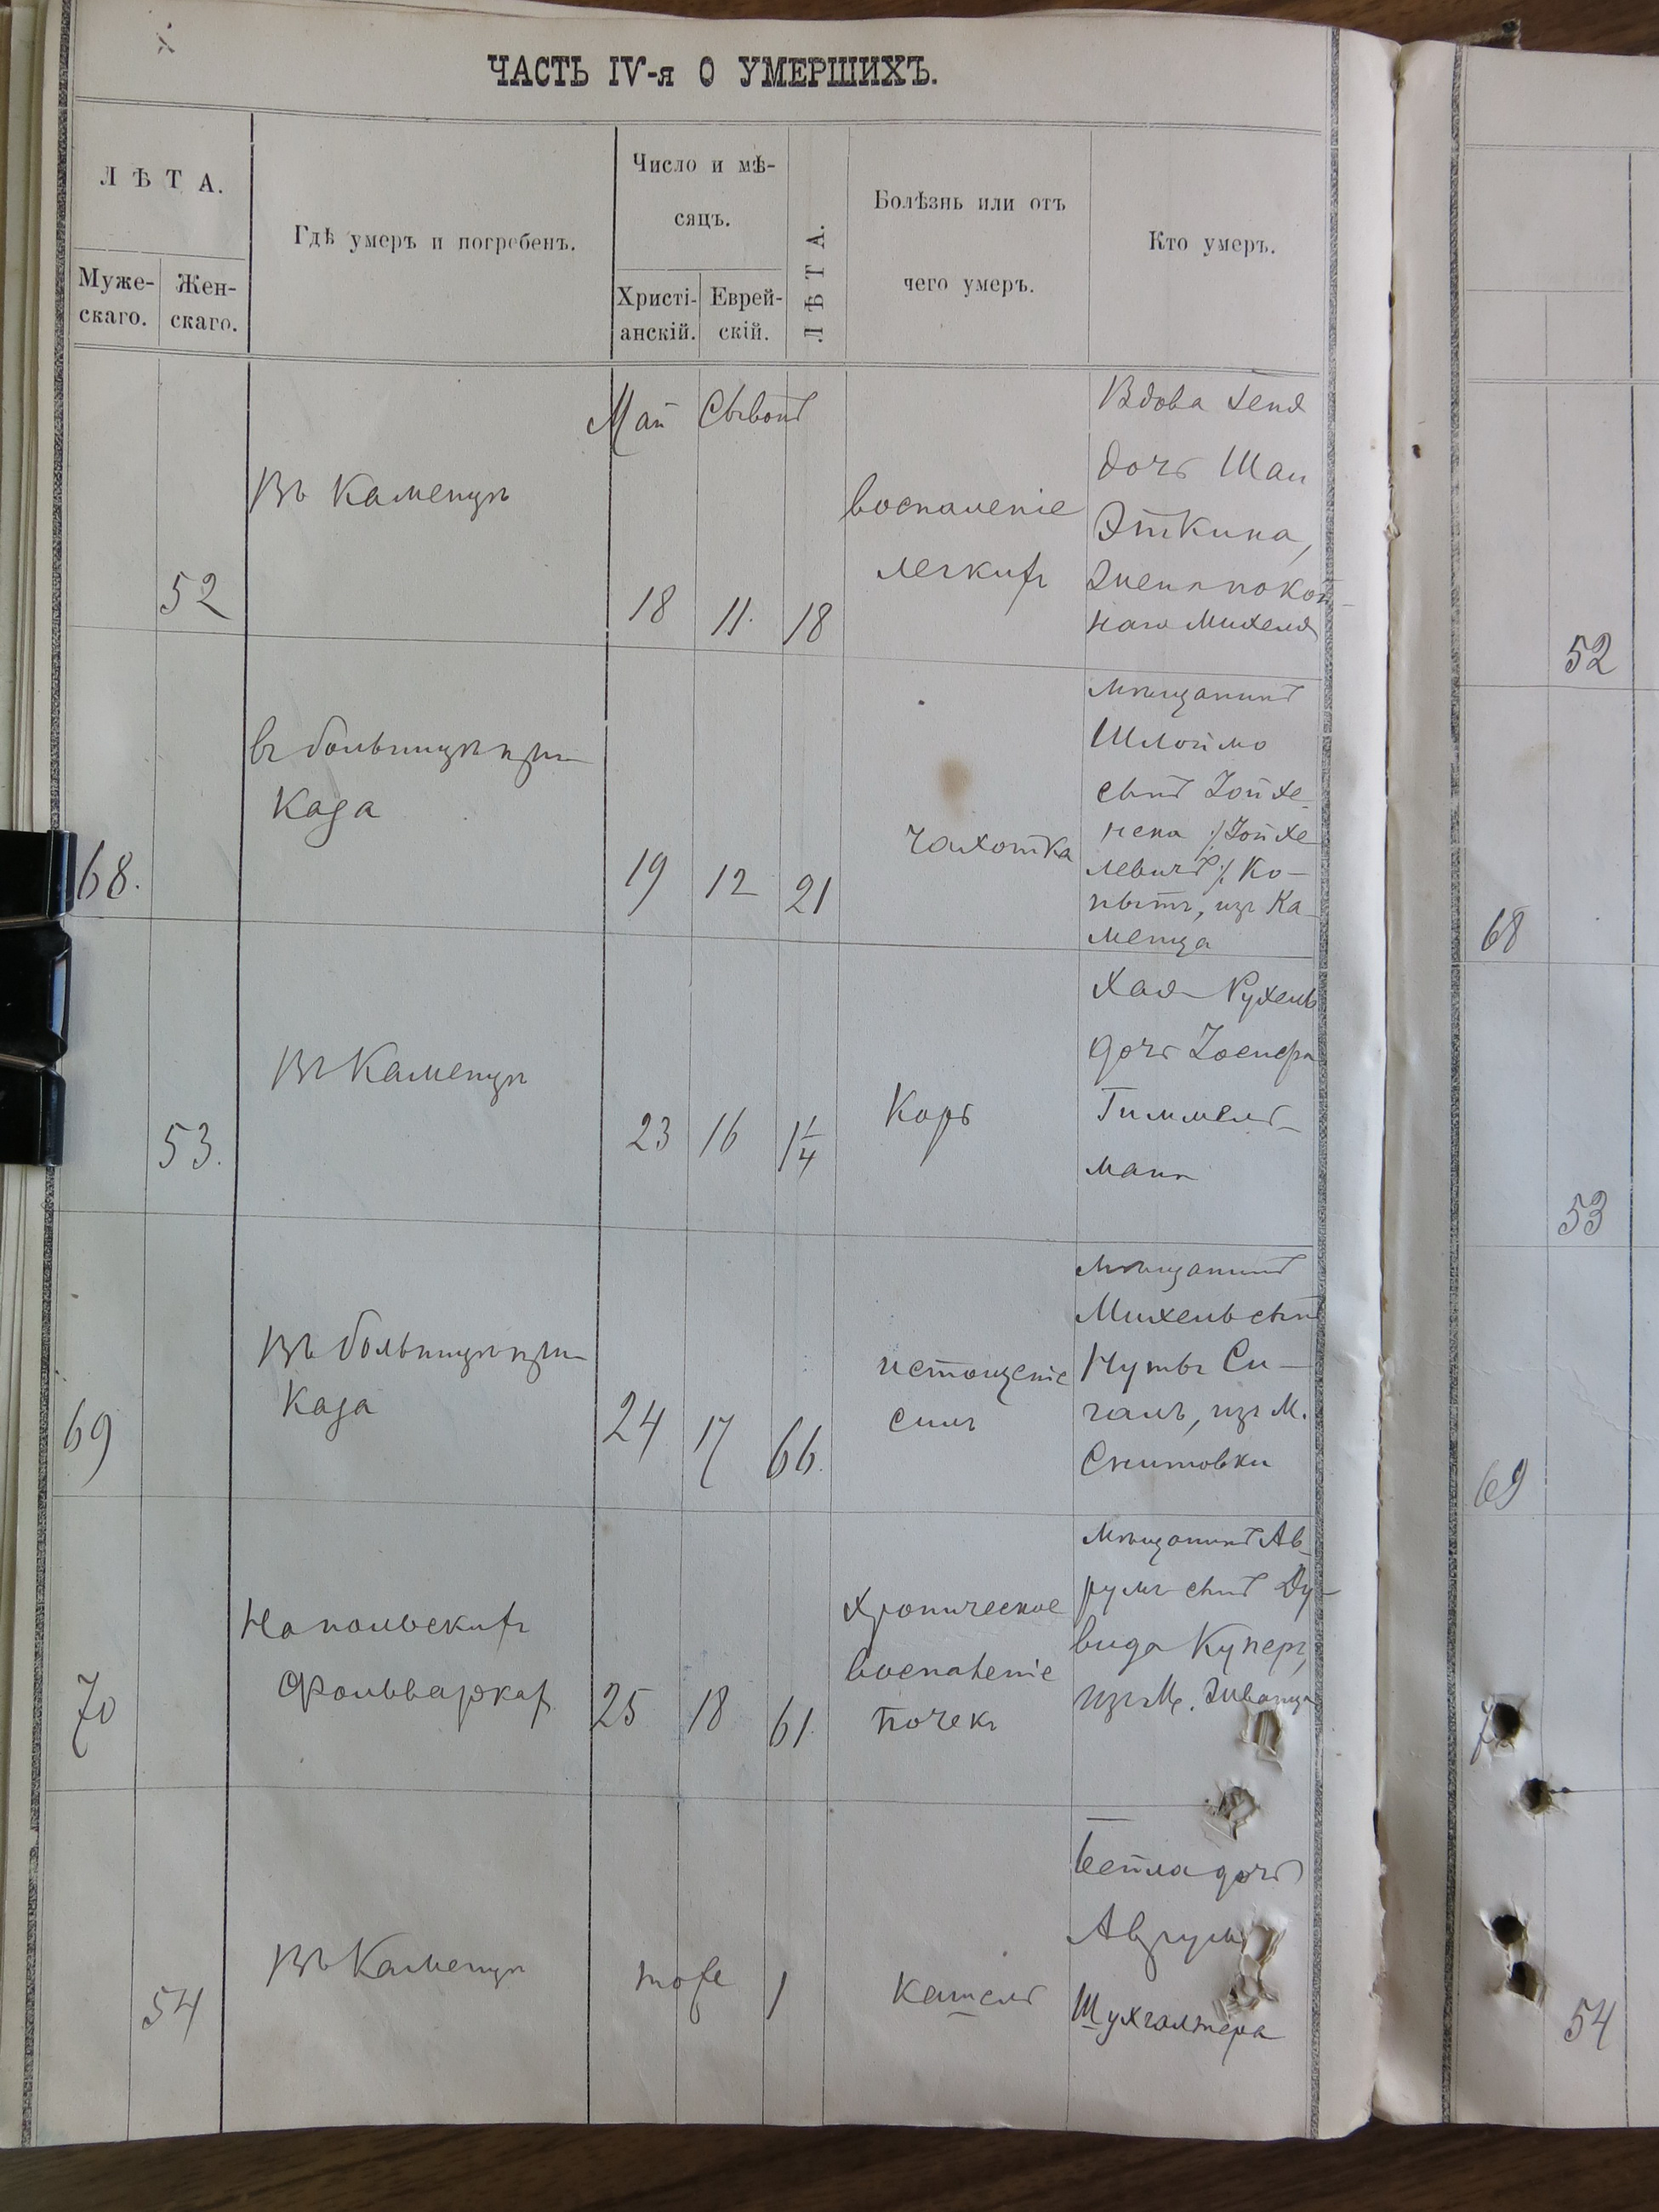 ЧАСТЬ IV-я О УМЕРШИХЪ.
ЛѢТА.
Муже-
скаго.
Жен-
скаго.
Гдѣ умеръ и погребенъ.
Число и мѣ-
сяцъ.
Христі-
анскій.
Еврей-
скій.
ЛѢТА.
Болѣзнь или отъ
чего умеръ.
Кто умеръ.
Май Сывонъ
52
Въ Каменцѣ
18 11. 18
воспаленіе
легкихъ
Вдова Геня
дочь Шаи
Эткина,
жена покой-
наго Михеля
68.
въ больницѣ при-
каза
19 12 21
чахотка
мѣщанинъ
Шлоймо
сынъ Іойхе-
нена /Іойхе
левичъ/ Ко-
пытъ, изъ Ка-
менца
53.
Въ Каменцѣ
23 16 1 1/4
Корь
Хая-Рухель
дочь Іосифа
Гиммель-
мана
69
Въ больницѣ при-
каза
24 17 66.
истощеніе
силъ
мѣщанинъ
Михель сынъ
Нуты Си-
галъ, изъ м.
Снитовки
70
На польскихъ
фольваркахъ
25 18 61.
хроническое
воспаленіе
почекъ
мѣщанинъ Ав-
румъ сынъ Ду-
вида Куперъ,
изъ м. Жванца
54
Въ Каменцѣ
тоже 1
кашель
Бейла дочь
Аврума
Шухгалтера
52
68
53
69
54